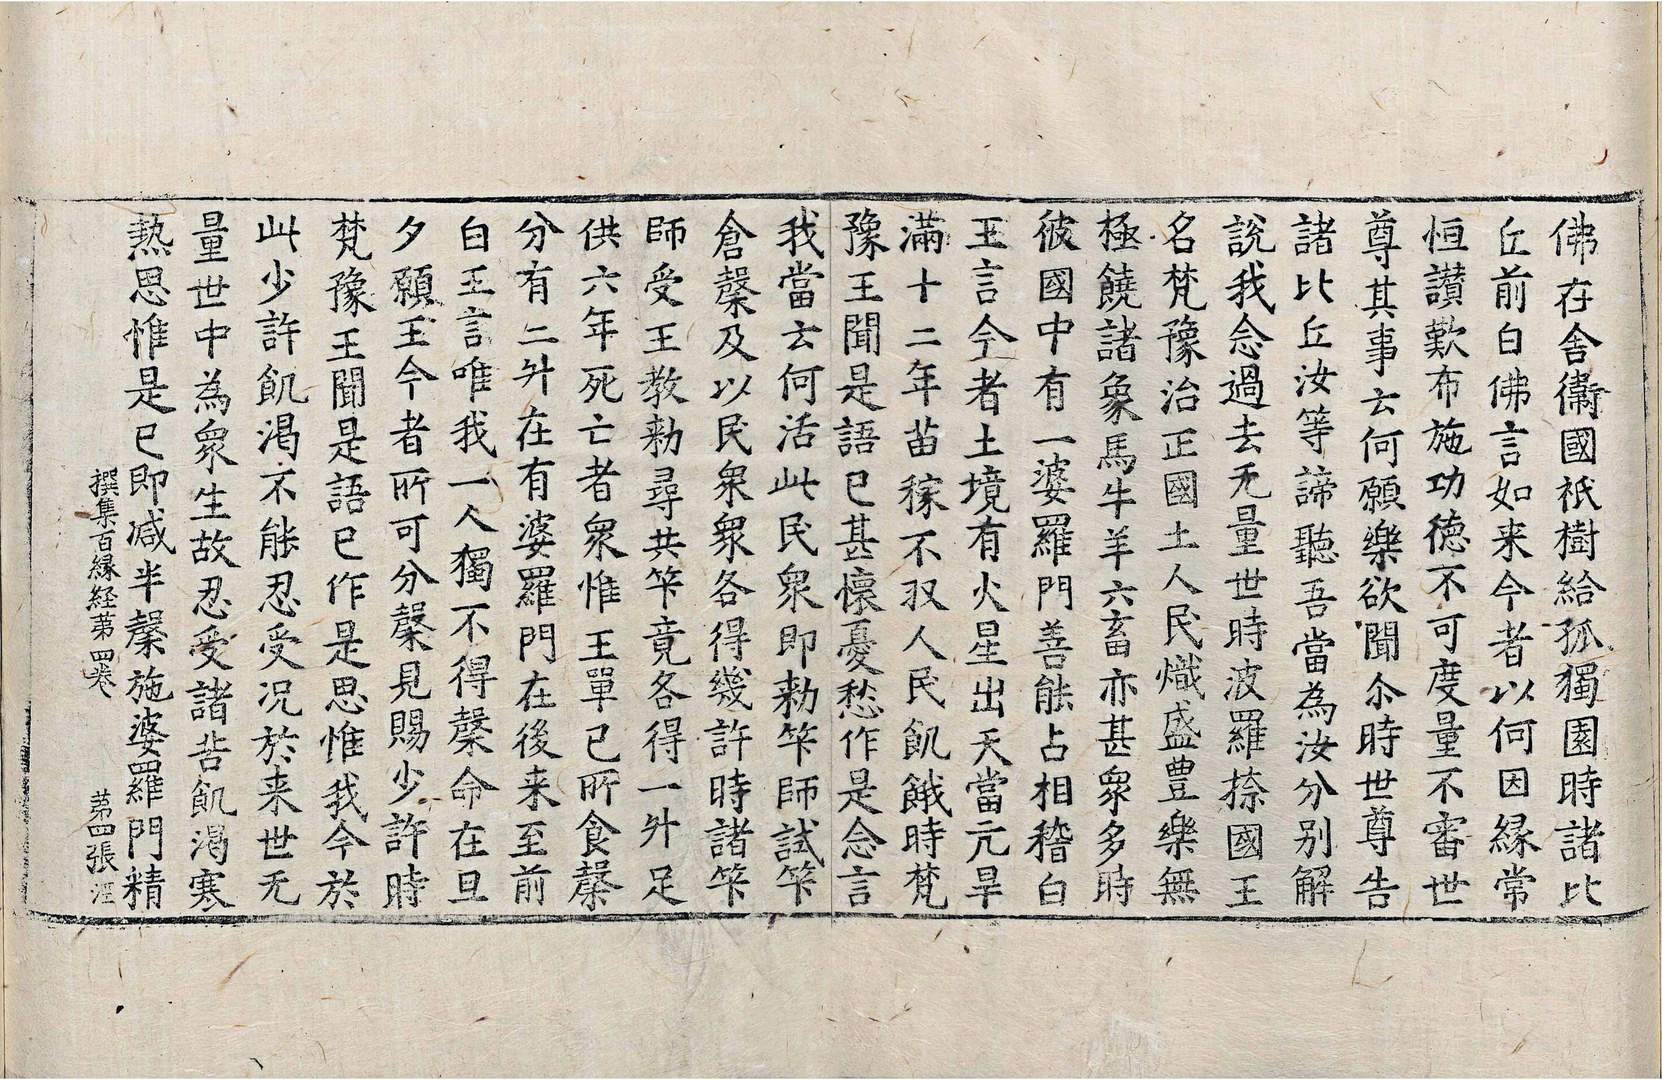 佛在舎衞國祇樹給孤獨園時諸比
丘前白佛言如来今者以何因縁常
恒讃歎布施功德不可度量不審世
尊其事云何願樂欲聞尒時世尊告
諸比丘汝等諦聽吾當為汝分別解
說我念過去无量世時波羅㮈國王
名梵豫治正國土人民熾盛豊樂無
極饒諸象馬牛羊六畜亦甚衆多時
彼國中有一婆羅門善能占相稽白
王言今者土境有火星出天當亢旱
滿十二年苗稼不収人民飢餓時梵
豫王聞是語已甚懷憂愁作是念言
我當云何活此民衆即勑筭師試筭
倉糓及以民衆衆各得幾許時諸筭
師受王教勑尋共筭竟各得一升足
供六年死亡者衆惟王單已所食糓
分有二升在有婆羅門在後来至前
白王言唯我一人獨不得糓命在旦
夕願王今者所可分糓見賜少許時
梵豫王聞是語已作是思惟我今於
此少許飢渴不能忍受况於来世无
量世中為衆生故忍受諸苦飢渴寒
熱思惟是已即減半糓施婆羅門精
撰集百縁経苐四巻 苐四張 涇